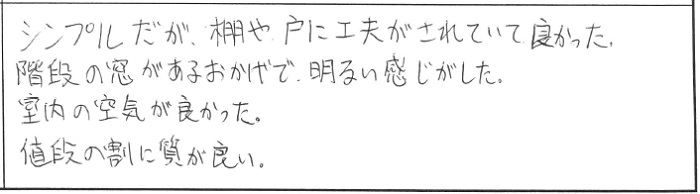 シンプルだが、棚や戸に工夫がされていて良かった。
階段の窓があるおかげで、明るい感じがした。
室内の空気が良かった。
値段の割に質が良い。